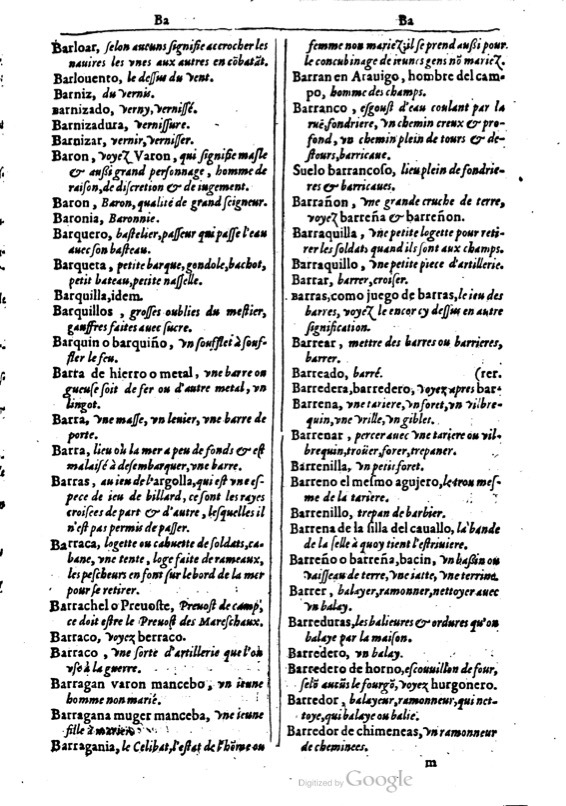 Ba
Barloar, selon aucuns signifie accrocher les
nauires les vnes aux autres en cōbatāt.
Barlouento, le dessus du vent.
Barniz, du vernis.
Barnizado, verny, vernissé.
Barnizadura, vernissure.
Barnizar, vernir, vernisser.
Baron, voyez Varon, qui signifie masle
& aussi grand personnage, homme de
raison, de discretion & de iugement.
Baron, Baron, qualité de grand seigneur.
Baronia, Baronnie.
Barquero, bastelier, passeur qui passe l'eau
auec son basteau.
Barqueta, petite barque, gondole, bachot,
petit bateau, petite nasselle.
Barquilla, idem.
Barquillos, grosses oublies du mestier,
gauffres faites auec sucre.
Barquin o barquiño, vn soufflet à souf-
fler le feu.
Barra de hierro o metal, vne barre ou
gueuse soit de fer ou d'autre metal, vn
lingot.
Barra, vne masse, vn leuier, vne barre de
porte.
Barra, lieu où la mer a peu de fonds & est
malaisé à desembarquer, vne barre.
Barras, au ieu de l'argolla, qui est vne es-
pece de ieu de billard, ce sont les rayes
croisees de part & d'autre, lesquelles il
n'est pas permis de passer.
Barraca, logette ou cahuette de soldats, ca-
bane, vne tente, loge faite de rameaux,
les pescheurs en font sur le bord de la mer
pour se retirer.
Barrachel o Preuoste, Preuost de camp,
ce doit estre le Preuost des Mareschaux.
Barraco, voyez berraco.
Barraco, vne sorte d'artillerie que l'on
vse à la guerre.
Barragan varon mancebo, vn ieune
homme non marié.
Barragana muger manceba, vne ieune
fille à marier
Barragania, le Celibat, l'estat de l'hōme ou
Ba
femme non mariez, il se prend aussi pour
le concubinage de ieunes gens nō mariez.
Barran en Arauigo, hombre del cam-
po, homme des champs.
Barranco, esgoust d'eau coulant par la
rue, fondriere, vn chemin creux & pro-
fond, vn chemin plein de tours & de-
stours, barricaue.
Suelo barrancoso, lieu plein de fondrie-
res & barricaues.
Barrañon, vne grande cruche de terre,
voyez barreña & barreñon.
Barraquilla, vne petite logette pour reti-
rer les soldats quand ils sont aux champs.
Barraquillo, vne petite piece d'artillerie.
Barrar, barrer, croiser.
Barras, como juego de barras, le ieu des
barres, voyez le encor cy dessus en autre
signification.
Barrear, mettre des barres ou barrieres,
barrer.
Barreado, barré. (rer.
Barredera, barredero, voyez apres bar-
Barrena, vne tariere, vn foret, vn vilbre-
quin, vne vrille, vn gibles.
Barrenar, percer auec vne tariere ou vil-
brequin, troüer, forer, trepaner.
Barrenilla, vn petit foret.
Barreno el mesmo agujero, le trou mes-
me de la tariere.
Barrenillo, trepan de barbier.
Barrena de la silla del cauallo, la bande
de la selle à quoy tient l'estriuiere.
Barreño o barreña, bacin, vn bassin ou
vaisseau de terre, vne iatte, vne terrine.
Barrer, balayer, ramonner, nettoyer auec
vn balay.
Barreduras, les balieures & ordures qu'on
balaye par la maison.
Barredero, vn balay.
Barredero de horno, escouuillon de four,
selō aucūs le fourgō, voyez hurgonero.
Barredor, balayeur, ramonneur, qui net-
toye, qui balaye ou balie.
Barredor de chimeneas, vn ramonneur
de cheminees.
m
Digitized by Google